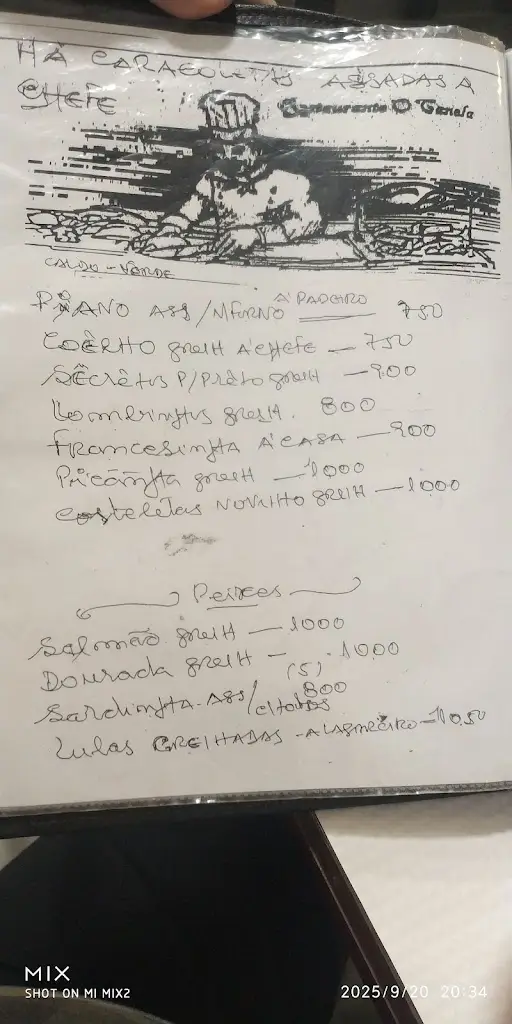 HÁ CARACOLETAS ASSADAS A
CHEFE
Restaurante O Canela
CALDO-VERDE
PIANO ASS/NFORNO À PADEIRO 750
COÊLHO grelH A'CHEFE — 750
SêcrêTus P/PrêTo grelH — 900
Lombrinhus grelH. 800
FrancesinHA A'CASA — 900
PicânHA grelH — 1000
costelêTas NOVILHO grelH — 1000
Peixes
Salmão grelH — 1000
Dourada grelH — 1000
(5)
SardinHA-ASS/ 800
Lulas GRELHADAS - A LAGAREIRO — 10.50
MIX
SHOT ON MI MIX2
2025/9/20 20:34